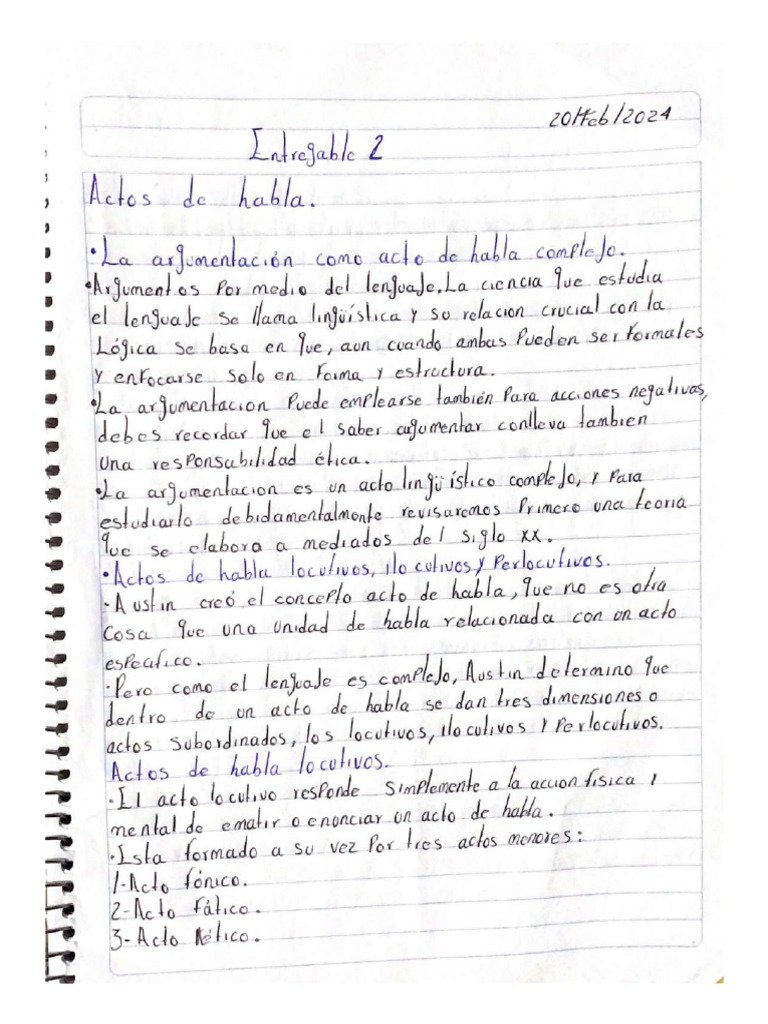 20/Feb/2024
Entregable 2
Actos de habla.
• La argumentación como acto de habla complejo.
• Argumentos por medio del lenguaje. La ciencia que estudia
el lenguaje se llama lingüística y su relacion crucial con la
Lógica se basa en que, aun cuando ambas pueden ser formales
y enfocarse solo en forma y estructura.
• La argumentacion puede emplearse también para acciones negativas,
debes recordar que el saber argumentar conlleva tambien
una responsabilidad ética.
• La argumentacion es un acto lingüístico complejo, y para
estudiarlo debidamentalmente revisaremos primero una teoria
que se elaboró a mediados del siglo xx.
• Actos de habla locutivos, ilocutivos y perlocutivos.
• Austin creó el concepto acto de habla, que no es otra
cosa que una unidad de habla relacionada con un acto
especifico.
• Pero como el lenguaje es complejo, Austin determino que
dentro de un acto de habla se dan tres dimensiones o
actos subordinados, los locutivos, ilocutivos y perlocutivos.
Actos de habla locutivos.
• El acto locutivo responde simplemente a la accion fisica y
mental de ematir o enunciar un acto de habla.
• Esta formado a su vez por tres actos menores:
1-Acto fónico.
2-Acto fático.
3-Acto rético.